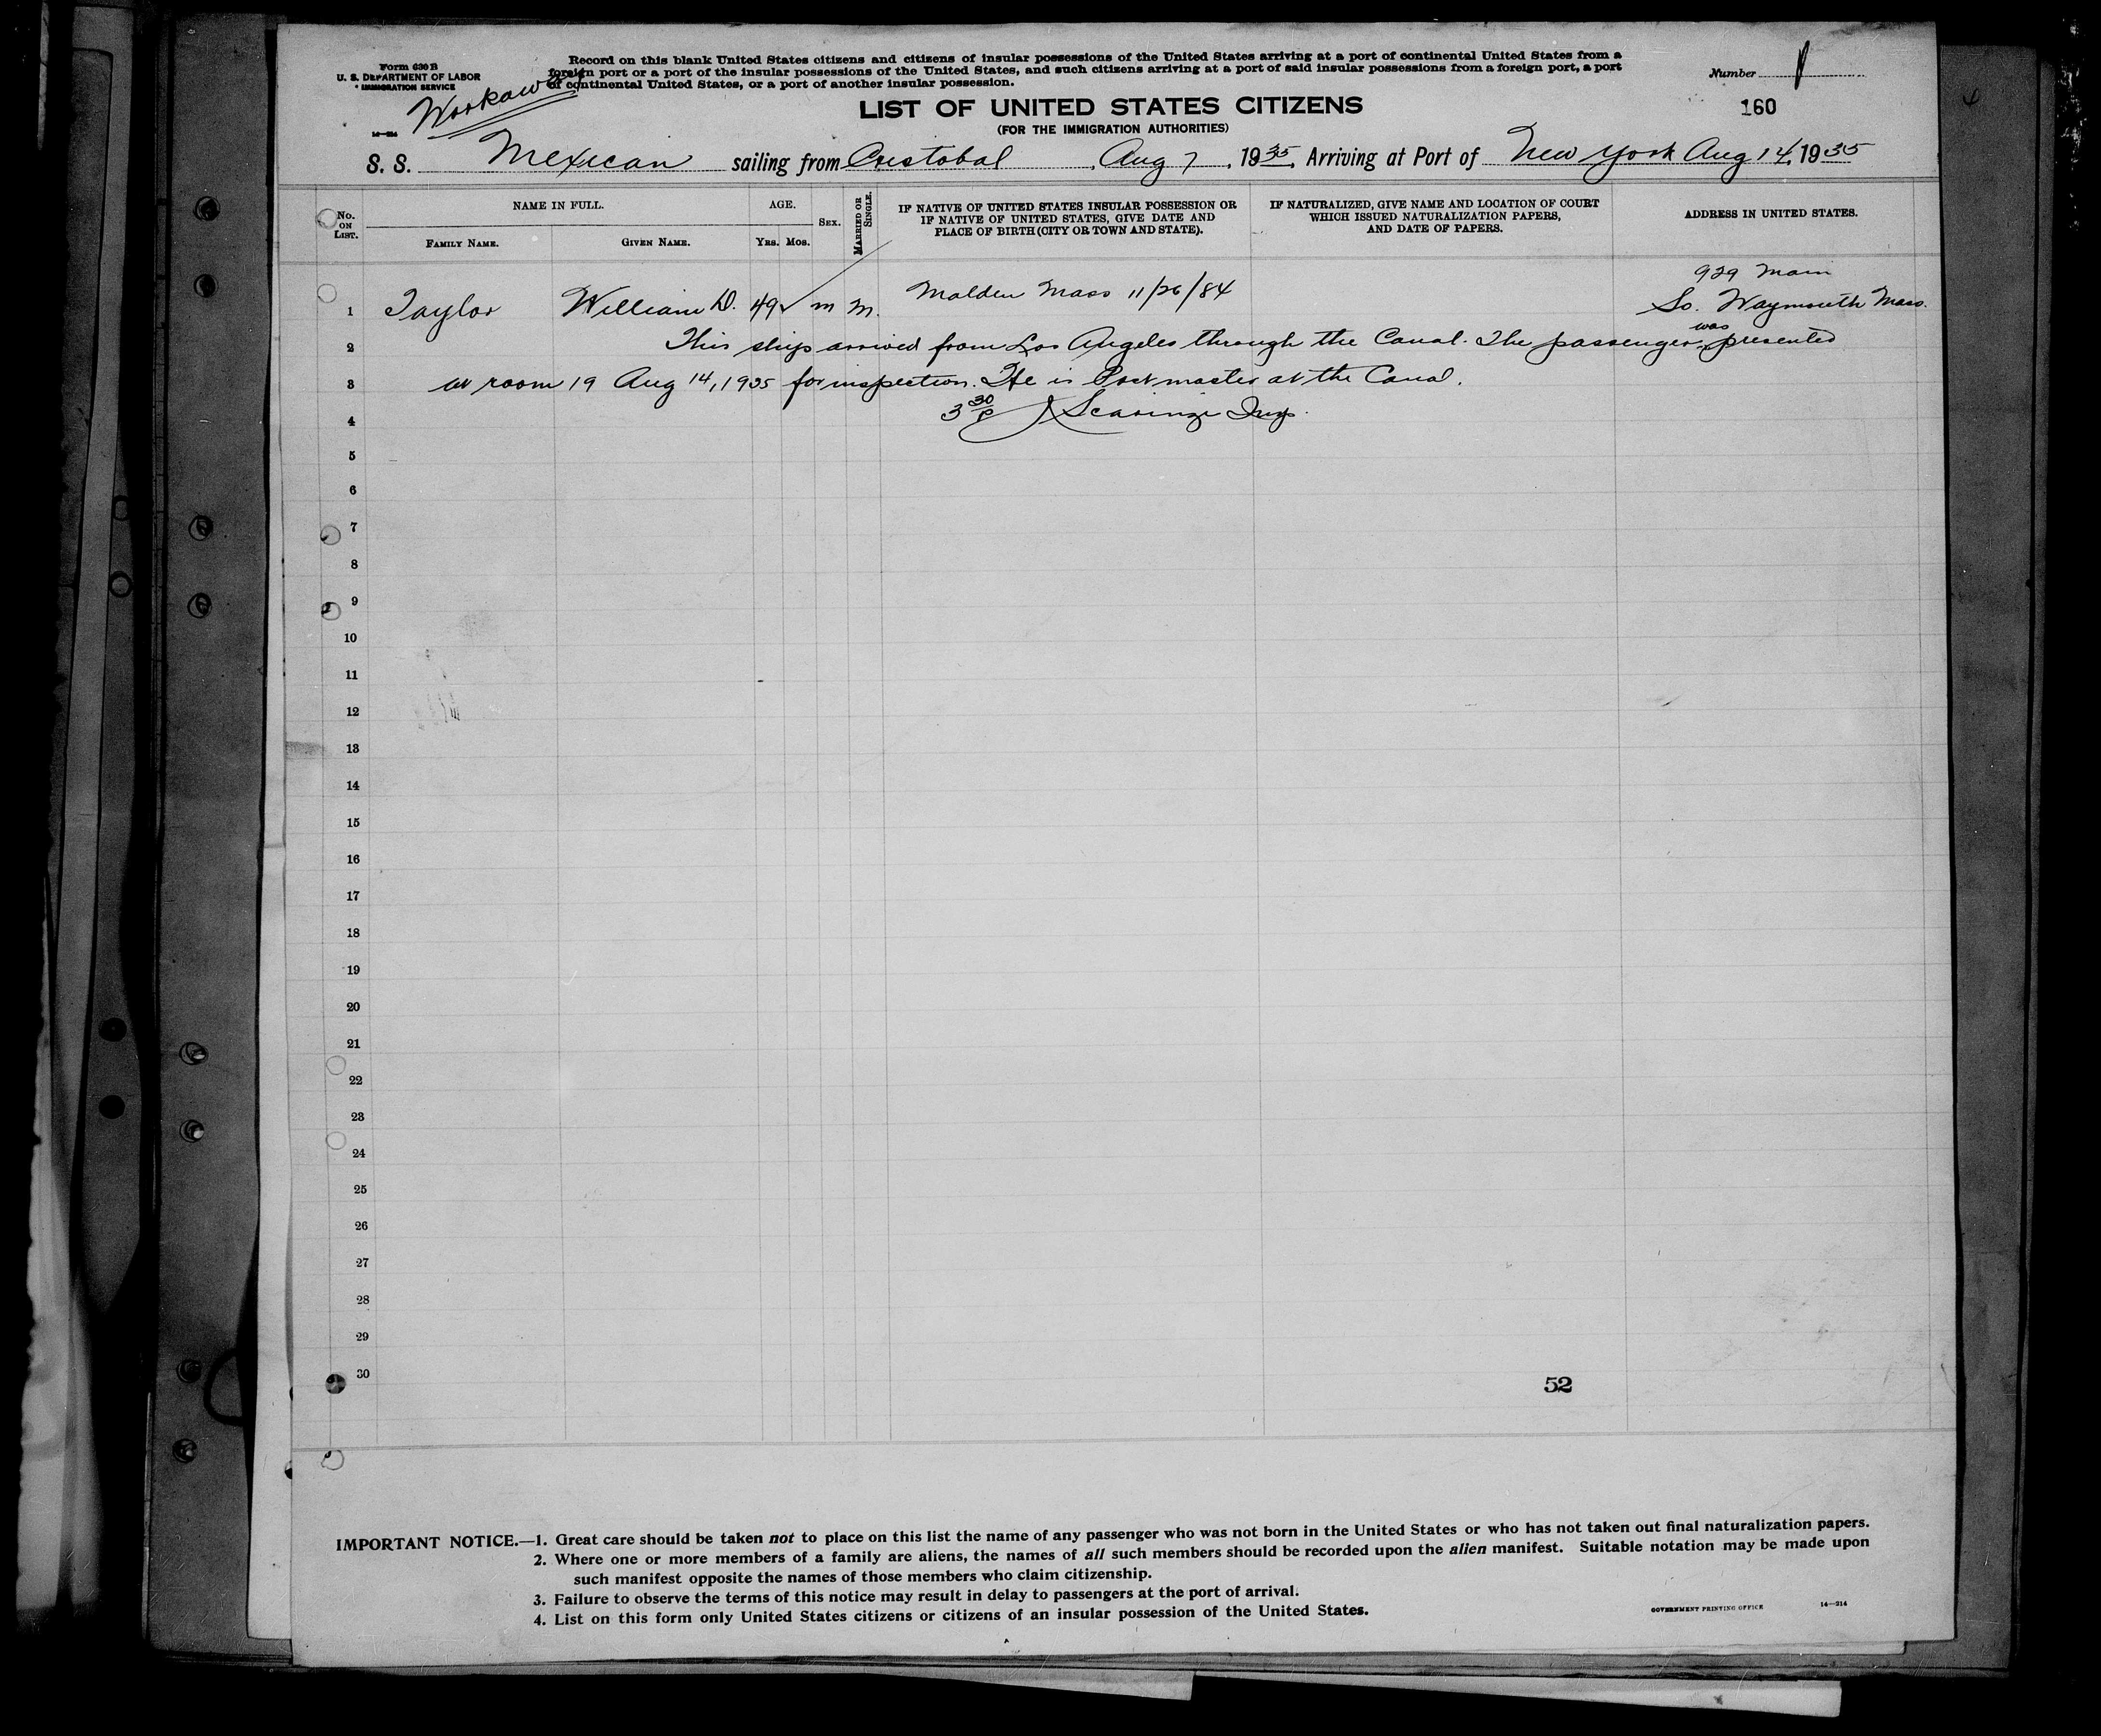 Form 630 B
U. S. DEPARTMENT OF LABOR
IMMIGRATION SERVICE
Workaway
14—214
Record on this blank United States citizens and citizens of insular possessions of the United States arriving at a port of continental United States from a
foreign port or a port of the insular possessions of the United States, and such citizens arriving at a port of said insular possessions from a foreign port, a port
of continental United States, or a port of another insular possession.
Number 1
160
LIST OF UNITED STATES CITIZENS
(FOR THE IMMIGRATION AUTHORITIES)
S. S. Mexican sailing from Cristobal, Aug 7, 1935, Arriving at Port of New York Aug 14, 1935
No. ON LIST.
NAME IN FULL.
FAMILY NAME.
GIVEN NAME.
AGE.
YRS. MOS.
SEX.
MARRIED OR SINGLE.
IF NATIVE OF UNITED STATES INSULAR POSSESSION OR
IF NATIVE OF UNITED STATES, GIVE DATE AND
PLACE OF BIRTH (CITY OR TOWN AND STATE).
IF NATURALIZED, GIVE NAME AND LOCATION OF COURT
WHICH ISSUED NATURALIZATION PAPERS,
AND DATE OF PAPERS.
ADDRESS IN UNITED STATES.
929 Main
1 Taylor William D. 49 m m. Malden Mass 11/26/84 So. Waymouth Mass.
2 This ship arrived from Los Angeles through the Canal. The passenger was presented
3 at room 19 Aug 14, 1935 for inspection. He is Postmaster at the Canal.
4 3 30 P J Scaringi Insp.
5
6
7
8
9
10
11
12
13
14
15
16
17
18
19
20
21
22
23
24
25
26
27
28
29
30
52
IMPORTANT NOTICE.—1. Great care should be taken not to place on this list the name of any passenger who was not born in the United States or who has not taken out final naturalization papers.
2. Where one or more members of a family are aliens, the names of all such members should be recorded upon the alien manifest. Suitable notation may be made upon
such manifest opposite the names of those members who claim citizenship.
3. Failure to observe the terms of this notice may result in delay to passengers at the port of arrival.
4. List on this form only United States citizens or citizens of an insular possession of the United States.
GOVERNMENT PRINTING OFFICE 14—214